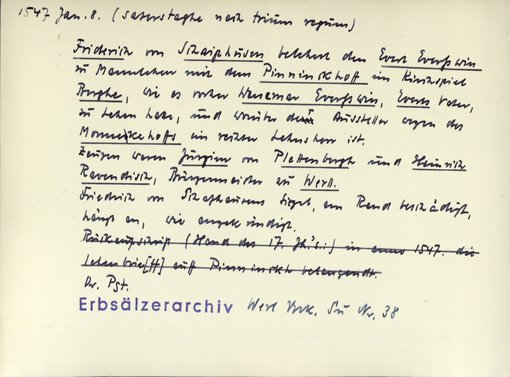 1547 Jan. 8. (Saterstaghe nach trium regum)
Friederich von Schaiphusen belehnt den Evert Everßwin
zu Mannlehen mit dem Pinninskhoff im Kirchspiel
Berghe, wie es vorher Wenemer Everßwin, Everts Vater,
zu Lehen hatte, und worüber der Aussteller wegen des
Monnickehoffs ein rechter Lehnsherr ist.
Zeugen waren Jürgien von Plettenbergh und Heinrich
Ravendisch, Bürgermeister zu Werl.
Friedrich von Schaphausens Siegel, am Rand beschädigt,
hängt an, wie angekündigt.
Rückaufschrift (Hand des 17. Jh's.:) in anno 1547. die
Lehnbrie[ff] auff Pinninskh belangendt.
Or. Pgt.
Erbsälzerarchiv Werl Urk. Nr. 38